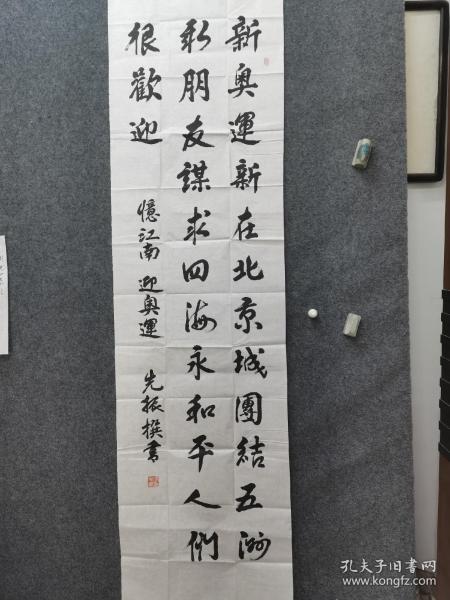 新奥運新在北京城團結五洲
新朋友謀求四海永和平人們
很歡迎
憶江南 迎奥運 先振撰書
孔夫子旧书网
www.kongfz.com